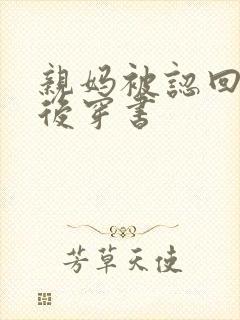 親媽被認回
後穿書
芳草天使